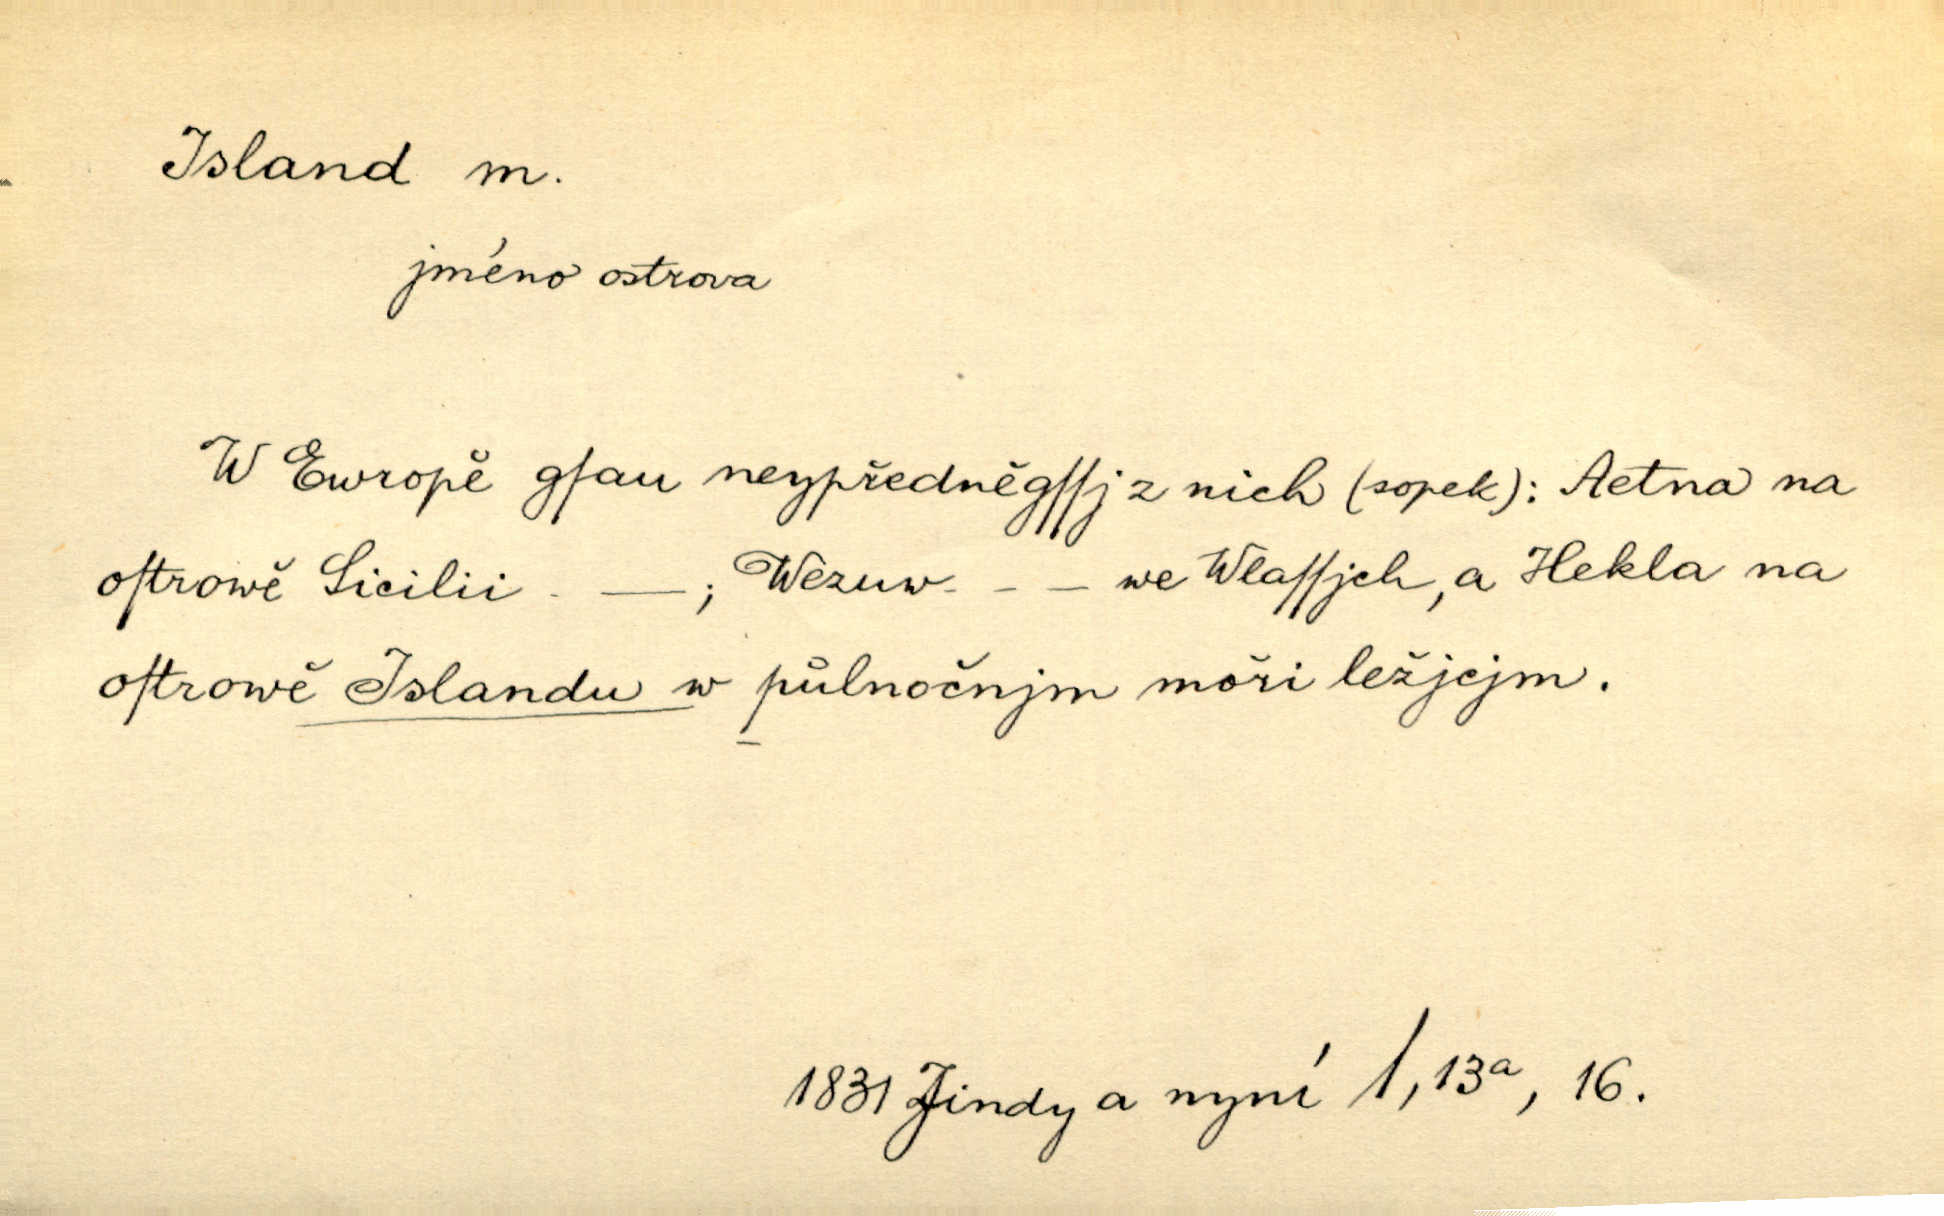 Island m.
jméno ostrova
W Ewropě gſau neypředněgſſj z nich (sopek): Aetna na
oſtrowě Sicilii . — ; Wèzuw - - — we Wlaſſjch, a Hekla na
oſtrowě Islandu w půlnočnjm moři ležjcjm.
1831 Jindy a nyní 1, 13ª, 16.